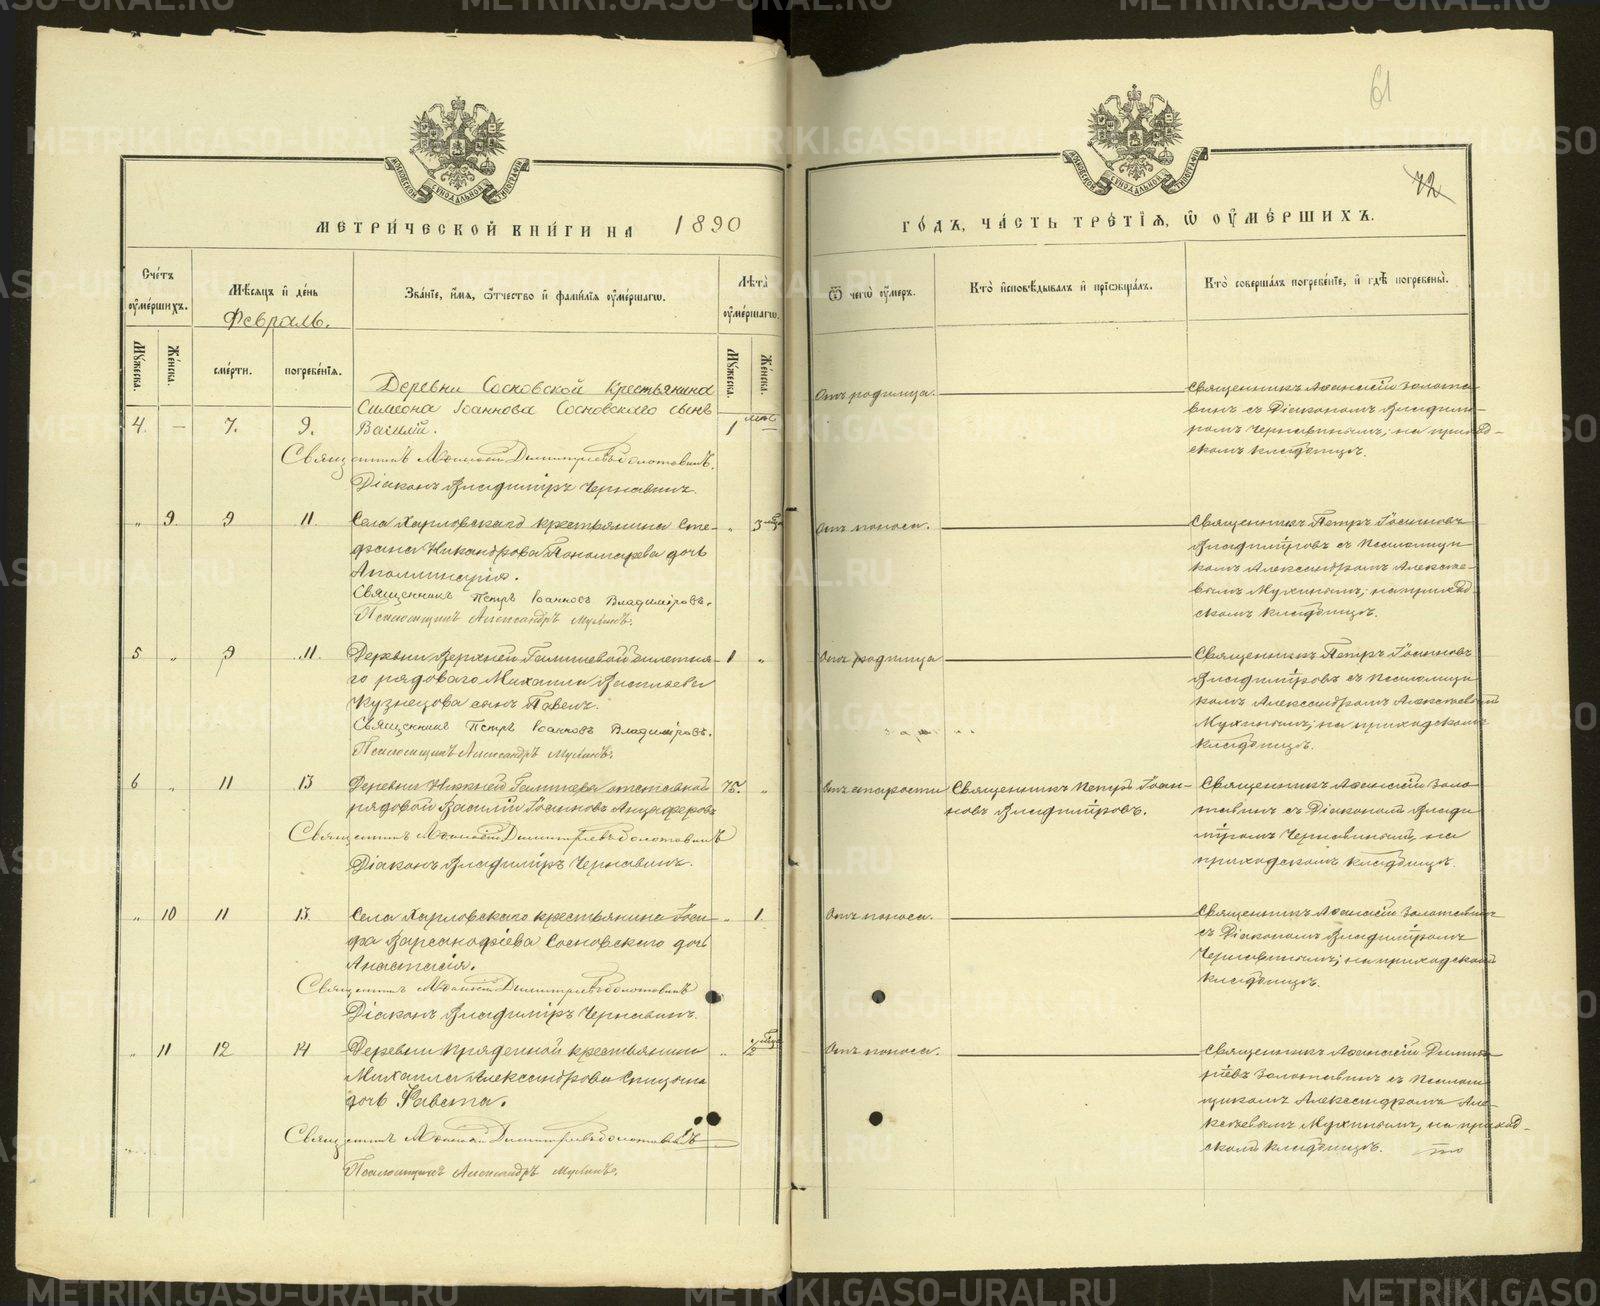 61
72
МЕТРИ́ЧЕСКОЙ КНИ́ГИ НА 1890
ГО́ДЪ, ЧА́СТЬ ТРЕ́ТІѦ, Ѡ ОУМЕ́РШИХЪ.
Сче́тъ оумершихъ.
Мѣсяцъ и день
Февраль.
Зва́ніе, и́мя, ѻ́тчество и фами́лія оуме́ршагѡ.
Лѣта оуме́ршагѡ.
Мужеска.
Женска.
сме́рти.
погребе́нія.
Мужеска.
Женска.
Ѿ чегѡ оу́меръ.
Кто̀ исповѣ́дывалъ и пріѡбща́лъ.
Кто̀ соверша́лъ погребе́ніе, и гдѣ̀ погребены̀.
Деревни Сосновской крестьянина
Симеона Іоаннова Сосновскаго сынъ
4. — 7. 9. Василій. 1 —
Священникъ Аѳанасій Димитріевъ Золотавинъ.
Діаконъ Владиміръ Чернавинъ.
Отъ родимца.
Священникъ Аѳанасій Золота-
винъ съ Діакономъ Влади-
ромъ Чернавинымъ; на приход-
скомъ кладбищѣ.
„ 9 9 11. Села Харловскаго крестьянина Сте- „ 3 мѣс
фана Никандрова Пономарева дочь
Аполлинарія.
Священникъ Петръ Іоанновъ Владиміровъ.
Псаломщикъ Александръ Мухинъ.
Отъ поноса.
Священникъ Петръ Іоанновъ
Владиміровъ съ Псаломщи-
комъ Александромъ Алексѣе-
вымъ Мухинымъ; на приход-
скомъ кладбищѣ.
5 „ 9 11. Деревни Верхней 1 „
го рядоваго Михаила Васильева
Кузнецова сынъ Павелъ.
Священникъ Петръ Іоанновъ Владиміровъ.
Псаломщикъ Александръ Мухинъ.
Отъ родимца
Священникъ Петръ Іоанновъ
Владиміровъ съ Псаломщи-
комъ Александромъ Алексѣевымъ
Мухинымъ; на приходскомъ
кладбищѣ.
6 „ 11 13 Деревни Нижней отставной 75. „
рядовой Василій Іоанновъ
Священникъ Аѳанасій Димитріевъ Золотавинъ
Діаконъ Владиміръ Чернавинъ.
Отъ старости
Священникъ Петръ Іоан-
новъ Владиміровъ.
Священникъ Аѳанасій Золо-
тавинъ съ Діакономъ Влади-
міромъ Чернавинымъ, на
приходскомъ кладбищѣ.
„ 10 11 13. Села Харловскаго крестьянина Іоси- „ 1.
фа Варсанофіева Сосновскаго дочь
Анастасія.
Священникъ Аѳанасій Димитріевъ Золотавинъ
Діаконъ Владиміръ Чернавинъ.
Отъ поноса.
Священникъ Аѳанасій Золотавинъ
съ Діакономъ Владиміромъ
Чернавинымъ; на приходскомъ
кладбищѣ.
„ 11 12 14 Деревни крестьянина „
Михаила Александрова
дочь Фавста.
Священникъ Аѳанасій Димитріевъ Золотавинъ
Псаломщикъ Александръ Мухинъ.
Отъ поноса.
Священникъ Аѳанасій Димит-
ріевъ Золотавинъ съ Псалом-
щикомъ Александромъ Але-
ксѣевымъ Мухинымъ, на приход-
скомъ кладбищѣ.
METRIKI.GASO-URAL.RU